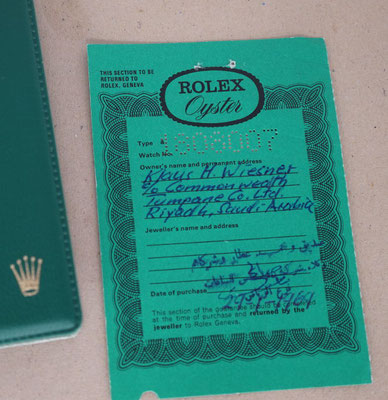 THIS SECTION TO BE
RETURNED TO
ROLEX, GENEVA
ROLEX
Oyster
Type
Watch No. 1806007
Owner's name and permanent address
Klaus H. Wiesner
c/o Commonwealth
Tumpane Co. Ltd
Riyadh, Saudi-Arabia
Jeweller's name and address
Date of purchase
This section of the guarantee should be
at the time of purchase and returned by the
jeweller to Rolex Geneva.